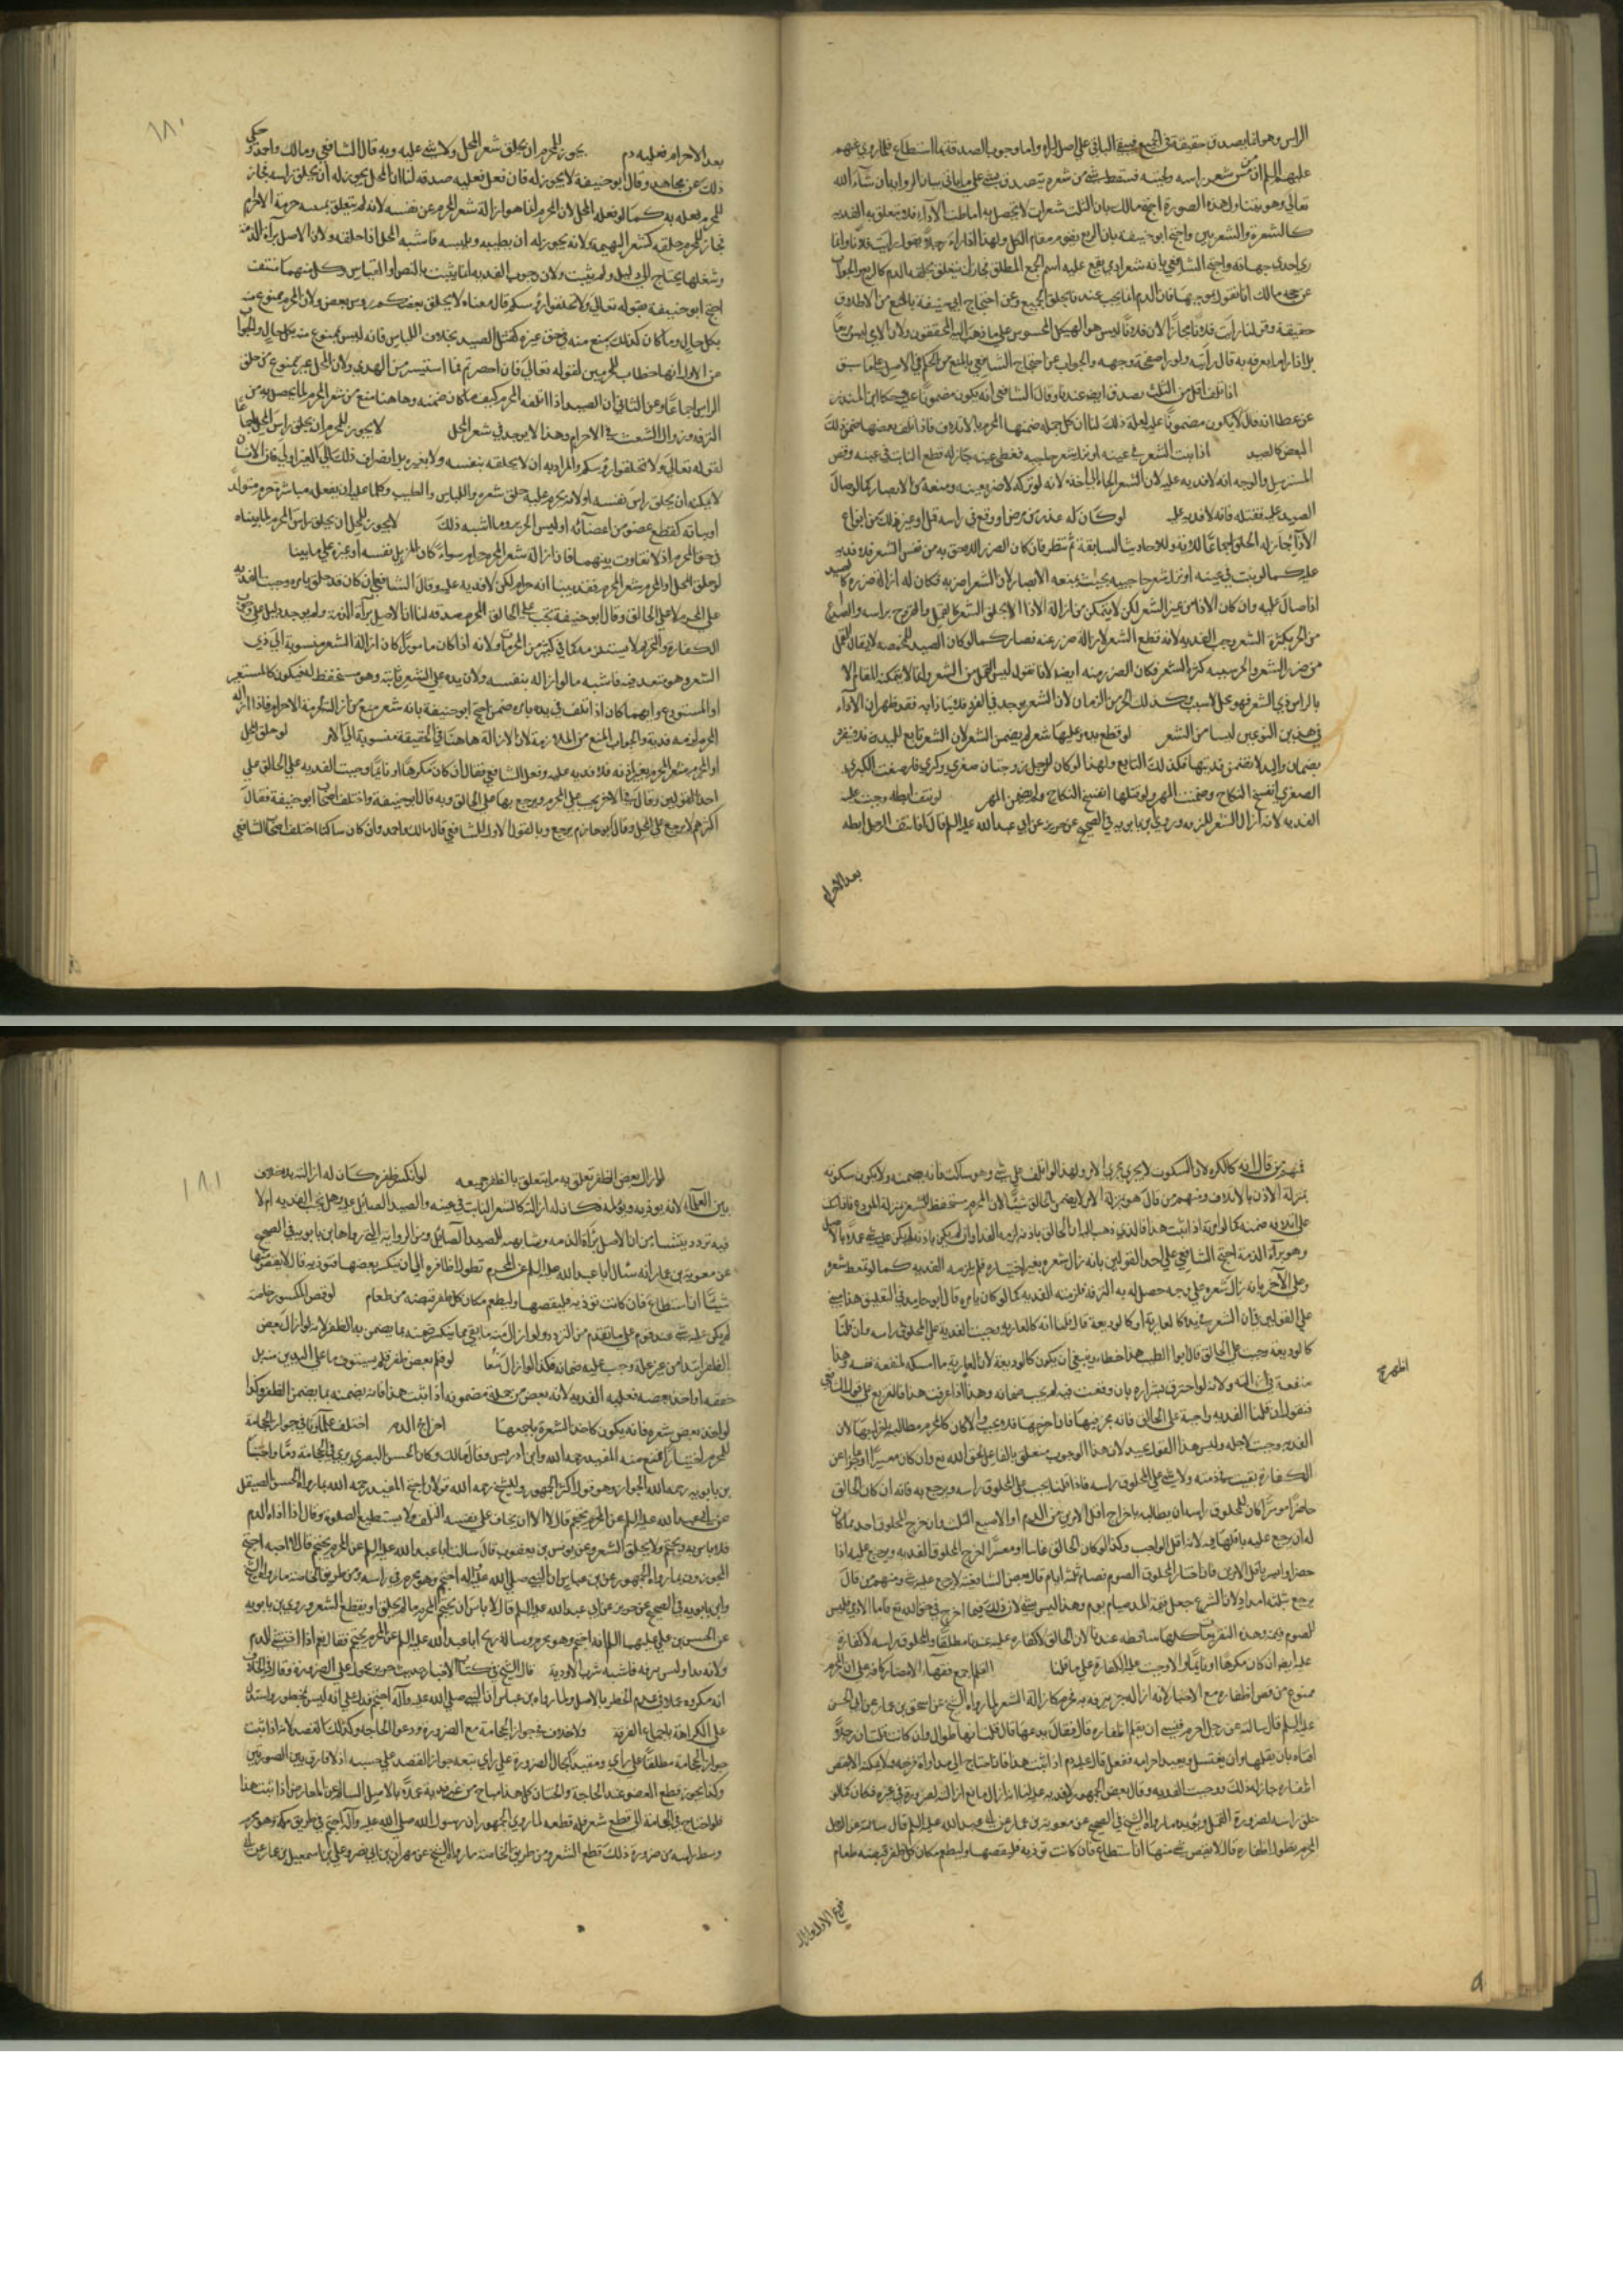 الراس وهو انما يصدق حقيقة في الجميع فيبقى الباقي على اصل البراءة واما وجوب الصدقة بما استطاع فلما روي عنهم
عليهم السلم ان من مس شعر راسه ولحيته فسقط شيء من شعره تيصدق بشيء على ما ياتي بيان الروايه ان شاء الله
تعالى وهو يتناول هذه الصورة احتج مالك بان الثلث شعرات لا يحصل به اماطة الاذى فلا يتعلق به الفديه
كالشعرة والشعرتين واحتج ابو حنيفة بان الربع يقوم مقام الكل ولهذا اذا راى رجلا يقول رايت فلانا وانما
راى احدى جهاته واحتج الشافعي بانه شعر ادمي يقع عليه اسم الجمع المطلق فجاز ان يتعلق بحلقه الدم كالربع والجواب
عن حجة مالك انا نقول بموجبها فان الدم انما يجب عندنا بحلق الجميع وعن احتجاج ابي حنيفة بالمنع من الاطلاق
حقيقة وقولنا رايت فلانا مجازا لان فلانا ليس هو الهيكل المحسوس على ما ذهب اليه المحققون ولان الاي ليس ربعا
بل اذا راى ما يعرفه به قال رايته ولو راى صفحة وجهه والجواب عن احتجاج الشافعي بالمنع من الحكم في الاصل على ما سبق
اذا نتف اقل من الثلث تصدق ايضا عندنا وقال الشافعي انه يكون مضمونا وحكى ابن المنذر
عن عطا انه قال لا يكون مضمونا عليه ذلك لنا ان كل جملة ضمنها المحرم بالاتلاف فاذا اتلف بعضها ضمن ذلك
البعض كالصيد اذا نبت الشعر في عينه او نزل شعر حاجبيه فغطى عينه جاز له قطع النابت في عينه وقص
المسترسل والوجه انه لا فديه عليه لان الشعر الجاه الى اخذه لانه لو تركه لاضر بعينه ومنعه من الابصار كما لو صال
الصيد عليه فقتله فانه لا فديه عليه لو كان له عذر من مرض او وقع في راسه قمل او غير ذلك من انواع
الاذى جاز له الحلق اجماعا للاية وللاحاديث السابقة ثم ننظر فان كان الضرر اللاحق به من نفس الشعر فلا فديه
عليه كما لو نبت في عينه او نزل شعر حاجبيه بحيث يمنعه الابصار لان الشعر اضر به فكان له ازالة ضرره كالصيد
اذا صال عليه وان كان الاذى من غير الشعر لكن لا يتمكن من ازالة الاذى الا بحلق الشعر كالقمل والقروح براسه والصداع
من الحر بكثرة الشعر وجب الفديه لانه قطع الشعر لازالة ضرر عنه فصار كما لو كان الصيد للمخمصه لا يقال القمل
من ضرر الشعر والحر سببه كثرة الشعر فكان الضرر منه ايضا لانا نقول ليس القمل من الشعر وانما لا يمكنه المقام الا
بالراس ذي الشعر فهو محل لا سبب وكذلك الحر من الزمان لان الشعر يوجد في البرد فلا يتاذى به فقد ظهر ان الاذى
في هذين النوعين ليسا من الشعر لو قطع يده وعليها شعر لم يضمن الشعر لان الشعر تابع لليد فلا يفرد
بضمان واليد لا تضمن فديتها فكذلك التابع ولهذا لو كان للرجل زوجتان صغرى وكبرى فارضعت الكبرى
الصغرى انفسخ النكاح وضمنت المهر ولو قتلها انفسخ النكاح ولم يضمن المهر لو نتف ابطه وجبت عليه
الفديه لانه ازال الشعر للترفه وروى بن بابويه في الصحيح عن حريز عن ابي عبد الله عليه السلم قال اذا نتف الرجل ابطه
بعد الاحرام
١٨٠
بعد الاحرام فعليه دم يجوز للمحرم ان يحلق شعر المحل ولا شيء عليه وبه قال الشافعي ومالك واحمد وحكي
ذلك عن مجاهد وقال ابو حنيفة لا يجوز له فان فعل فعليه صدقه لنا ان المحل يجوز له ان يحلق راسه فجاز
للمحرم فعله به كما لو فعله المحل لان المحرم انما هو ازالة شعر المحرم عن نفسه لانه لم يتعلق بمسه حرمة الاحرام
فجاز للمحرم حلقه كشعر البهيمة ولانه يجوز له ان يطيبه ويلبسه فاشبه المحل اذا حلقه ولان الاصل براءة الذمة
وشغلها يحتاج الى دليل ولم يثبت ولان وجوب الفديه انما يثبت بالنص او القياس وكل منهما منتفٍ
احتج ابو حنيفة بقوله تعالى ولا تحلقوا رؤسكم قال معناه لا يحلق بعضكم روس بعض ولان المحرم ممنوع منه
بكل حال وما كان كذلك يمنع منه في حق غيره كقتل الصيد بخلاف اللباس فانه ليس بممنوع منه بكل حال والجواب
عن الاول انها خطاب للمحرمين لقوله تعالى فان احصرتم فما استيسر من الهدي ولان المحل غير ممنوع من حلق
الراس اجماعا وعن الثاني ان الصيد اذا اتلفه المحرم كيف ما كان ضمنه وهاهنا منع من شعر المحرم لما يحصل به من
الترفه وزوال الشعث في الاحرام وهذا لا يوجد في شعر المحل لا يجوز للمحرم ان يحلق راس المحرم اجماعا
لقوله تعالى ولا تحلقوا رؤسكم والمراد به ان لا يحلقه بنفسه ولا بغيره بل انصراف ذلك الى الغير اولى فان الانسان
لا يمكنه ان يحلق راس نفسه او لانه يحرم عليه حلق شعره واللباس والطيب وكلما عليه ان يفعل مباشرة حرم متولدا
او بيانه كقطع عضو من اعضائه او لبس الحرير وما اشبه ذلك لا يجوز للمحل ان يحلق راس المحرم لما بيناه
في حق المحرم اذ لا تفاوت بينهما فان ازالة شعر المحرم حرام سواء كان المزيل نفسه او غيره على ما بينا
لو حلق المحل او المحرم شعر المحرم فقد بينا انه حرام لكن لا فديه عليه وقال الشافعي ان كان قد حلق بامره وجبت الفديه
على المحرم لا على الحالق وقال ابو حنيفة تجب على الحالق المحرم صدقه لنا ان الاصل براءة الذمة ولم يوجد دليل على وجوب
الكفارة والتحريم لا يستلزمه كما في كثير من المحرمات ولانه اذا كان مامورا كان ازالة الشعر منسوبة الى ذي
الشعر وهو متعد فيه فاشبه ما لو ازاله بنفسه ولان يده على الشعر ثابته وهو مستحفظ له فيكون كالمستعير
او المستودع وايهما كان اذا تلف في يده بامره ضمن احتج ابو حنيفة بانه شعر منع من ازالته لحرمة الاحرام فاذا ازاله
المحرم لزمه فدية والجواب المنع من الملازمة لان الازالة هاهنا في الحقيقة منسوبة الى الامر لو حلق المحل
او المحرم شعر المحرم بغير اذنه فلا فديه عليه وفصل الشافعي فقال ان كان مكرها او نايما وجبت الفديه على الحالق على
احد القولين وقال في الاخر يجب على المحرم ويرجع بها على الحالق وبه قال ابو حنيفة واختلف اصحاب ابو حنيفة فقال
اكثرهم لا يرجع على المحل وقال ابو حازم يرجع وبالقول الاول للشافعي قال مالك واحمد وان كان ساكتا اختلف اصحاب الشافعي
فمنهم من قال انه كالكره لان السكوت لا يجري مجرى الامر ولهذا لو اتلف على شيء وهو ساكت فانه يضمنه ولا يكون سكوته
بمنزلة الاذن بالاتلاف ومنهم من قال هو بمنزلة الامر لا يضمن الحالق شيئا لان المحرم مستحفظ للشعر بمنزلة المودع فاذا سكت
على اتلافه ضمنه كما لو امر به اذا ثبت هذا فالذي نذهب اليه ان الحالق باذنه لزمه الفدا وان لم يكن باذنه لم يكن عليه شيء عملا بالاصل
وهو براءة الذمة احتج الشافعي على احد القولين بانه زال شعره بغير اختياره فلم يلزمه الفديه كما لو تمعط شعره
وعلى الاخر بانه زال شعره على وجه حصل له به الترفه فلزمته الفديه كما لو كان بامره قال ابو حامد في التعليق هذا مبني
على القولين في ان الشعر في يده كالعارية او كالوديعة قال فان قلنا انه كالعاريه وجبت الفدية على المحلوق راسه وان قلنا
كالوديعة وجبت على الحالق قال ابو الطيب هذا خطا وينبغي ان يكون كالوديعة لان العارية ما امسكه لمنفعة نفسه وهنا
منفعة في ازالته ولانه لو احترق بشراره بان وقعت فيه لم يجب ضمانه وهذا اذا عرفت هذا فالتفريع على قول الشافعي
فنقول ان قلنا الفديه واجبة على الحالق فانه يخرجها فان اخرجها فلا بحث والا كان للمحرم مطالبته باخراجها لان
الفديه وجبت لاجله وليس هذا القول بجيد لان هذا الوجوب متعلق بالفاعل لحق الله تع وان كان معسرا او عاجزا عن
الكفارة بقيت في ذمته ولا شيء على المحلوق راسه فاذا قلنا يجب على المحلوق راسه ويرجع به فانه ان كان الحالق
حاضرا موسرا كان للمحلوق راسه ان يطالبه باخراج اقل الامرين من الدم او الاصيع الثلث فان خرج المحلوق احدهما كان
له ان يرجع عليه باقلها قيمة لانه اقل الواجب وكذا لو كان الحالق غايبا او معسرا اخرج المحلوق الفديه ويرجع عليه اذا
حضر او ايسر باقل الامرين فان اختار المحلوق الصوم فصام ثلثة ايام قال بعض الشافعية لا يرجع عليه بشيء ومنهم من قال
يرجع بثلثة امداد لان الشرع جعل قيمة المد صيام يوم وهذا ليس بشيء لان ذلك فيما اخرج في حق الله تع فاما الادمي فليس
للصوم قيمة وهذه التفريعات كلها ساقطه عندنا لان الحالق لا كفارة عليه عندنا مطلقا والمحلوق راسه لا كفارة
عليه ايضا ان كان مكرها او نايما والا وجبت عليه الكفارة على ما قلنا القلم اجمع فقهاء الامصار كافة على ان المحرم
ممنوع من قص اظفاره مع الاختيار لانه ازالة جزء يترفه به فحرم كازالة الشعر لما رواه الشيخ عن اسحق بن عمار عن ابي الحسن
عليه السلم قال سالته عن رجل احرم فنسي ان يقلم اظفاره قال فقال يدعها قال قلت انها طوال قال وان كانت قلت ان رجلا
افتاه بان يقلمها وان يغتسل ويعيد احرامه ففعل قال عليه دم اذا ثبت هذا فان احتاج الى مداواة قرحه ولا يمكنه الا بقص
اظفاره جاز له ذلك ووجبت الفديه وقال بعض الجمهور لا فديه عليه لنا انه ازال ما منع ازالته لضرورة في غيره فكان كما لو
حلق راسه لضرورة القمل ويؤيده ما رواه الشيخ في الصحيح عن معوية بن عمار عن ابي عبد الله عليه السلم قال سالته عن الرجل
المحرم يطول اظفاره قال لا يقص شيء منها ان استطاع فان كانت توذيه فليقصها وليطعم مكان كل ظفر قبضة طعام
اظهر ح
فروع الاول لو ازال
١٨١
لو ازال بعض الظفر تعلق به ما يتعلق بالظفر جميعه لو انكسر ظفره كان له ازالته بلا خلاف بين
بين العلماء لانه يوذيه ويولمه فكان له ازالته كالشعر النابت في عينه والصيد الصايل عليه هل يجب الفديه ام لا
فيه تردد ينشا من ان الاصل براءة الذمه ومشابهته للصيد الصائل ومن الرواية التي رواها بن بابويه في الصحيح
عن معوية بن عمار انه سال ابا عبد الله عليه السلم عن المحرم تطول اظافره الى ان ينكسر بعضها فتوذيه قال لا يقص منها
شيئا ان استطاع فان كانت توذيه فليقصها وليطعم مكان كل ظفر قبضه من طعام لو قص المكسور خاصة
لم يكن عليه شيء عند قوم على ما تقدم من التردد ولو ازال منه ما بقي مما ينكسر ضمنه بما يضمن به الظفر لانه لو ازال بعض
الظفر ابتداء من غير علة وجب عليه ضمانه فكذا لو ازال تبعا لو قلم بعض ظفر فلم يستوف ما على اليدين بل
خففه او اخذ بعضه فعليه الفديه لانه بعض من جملة مضمونه اذا ثبت هذا فانه يضمنه بما يضمن الظفر وكذا
لو اخذ بعض شعره فانه يكون كاخذ الشعرة باجمعها اخراج الدم اختلف علماؤنا في جواز الحجامة
للمحرم اختيارا فمنع منه المفيد رحمه الله وابن ادريس وقال مالك وكان الحسن البصري يرى في الحجامة دما واختيار
بن بابويه رحمه الله الجواز وهو قول اكثر الجمهور وللشيخ رحمه الله قولان احتج المفيد رحمه الله بما رواه الحسن الصيقل
عن ابي عبد الله عليه السلم عن المحرم يحتجم قال لا الا ان يخاف على نفسه التلف ولا يستطيع الصلوة وقال اذا اذاه الدم
فلا باس به ويحتجم ولا يحلق الشعر وعن يونس بن يعقوب قال سالت ابا عبد الله عليه السلم عن المحرم يحتجم قال لا احبه احتج
المجوزون بما رواه الجمهور عن بن عباس ان النبي صلى الله عليه واله احتجم وهو محرم في راسه ومن طريق الخاصة ما رواه الشيخ
وابن بابويه في الصحيح عن حريز عن ابي عبد الله عليه السلم قال لا باس ان يحتجم المحرم ما لم يحلق او يقطع الشعر وروى بن بابويه
عن الحسن بن علي عليهما السلم انه احتجم وهو محرم وسال ذريح ابا عبد الله عليه السلم عن المحرم يحتجم فقال نعم اذا خشي الدم
ولانه تداو وليس بترفه فاشبه شرب الادويه قال الشيخ في كتاب الاخبار حديث حريز محمول على الضرورة وقال في الخلاف
انه مكروه عملا في عدم الحظر بالاصل ولما رواه بن عباس ان النبي صلى الله عليه وآله احتجم فدل على انه ليس بمحظور واستدل
على الكراهة باجماع الفرقة ولا خلاف في جواز الحجامة مع الضرورة ودعوى الحاجة وكذلك الفصد لانه اذا ثبت
جواز الحجامة مطلقا على رأي ومقيدا بحال الضرورة على رأي تبعه جواز الفصد على حسبه اذ لا فارق بين الصورتين
وكذا يجوز قطع العضو عند الحاجة والختان كل هذا مباح من غير فديه عملا بالاصل السالم عن المعارض اذا ثبت هذا
فلو احتاج في الحجامة الى قطع شعر فله قطعه لما روى الجمهور ان رسول الله صلى الله عليه وآله احتجم في طريق مكة وهو محرم
وسط راسه من ضرورة ذلك قطع الشعر ومن طريق الخاصة ما رواه الشيخ عن مهران بن ابي نصر وعلي بن اسمعيل بن عمار عن ابي